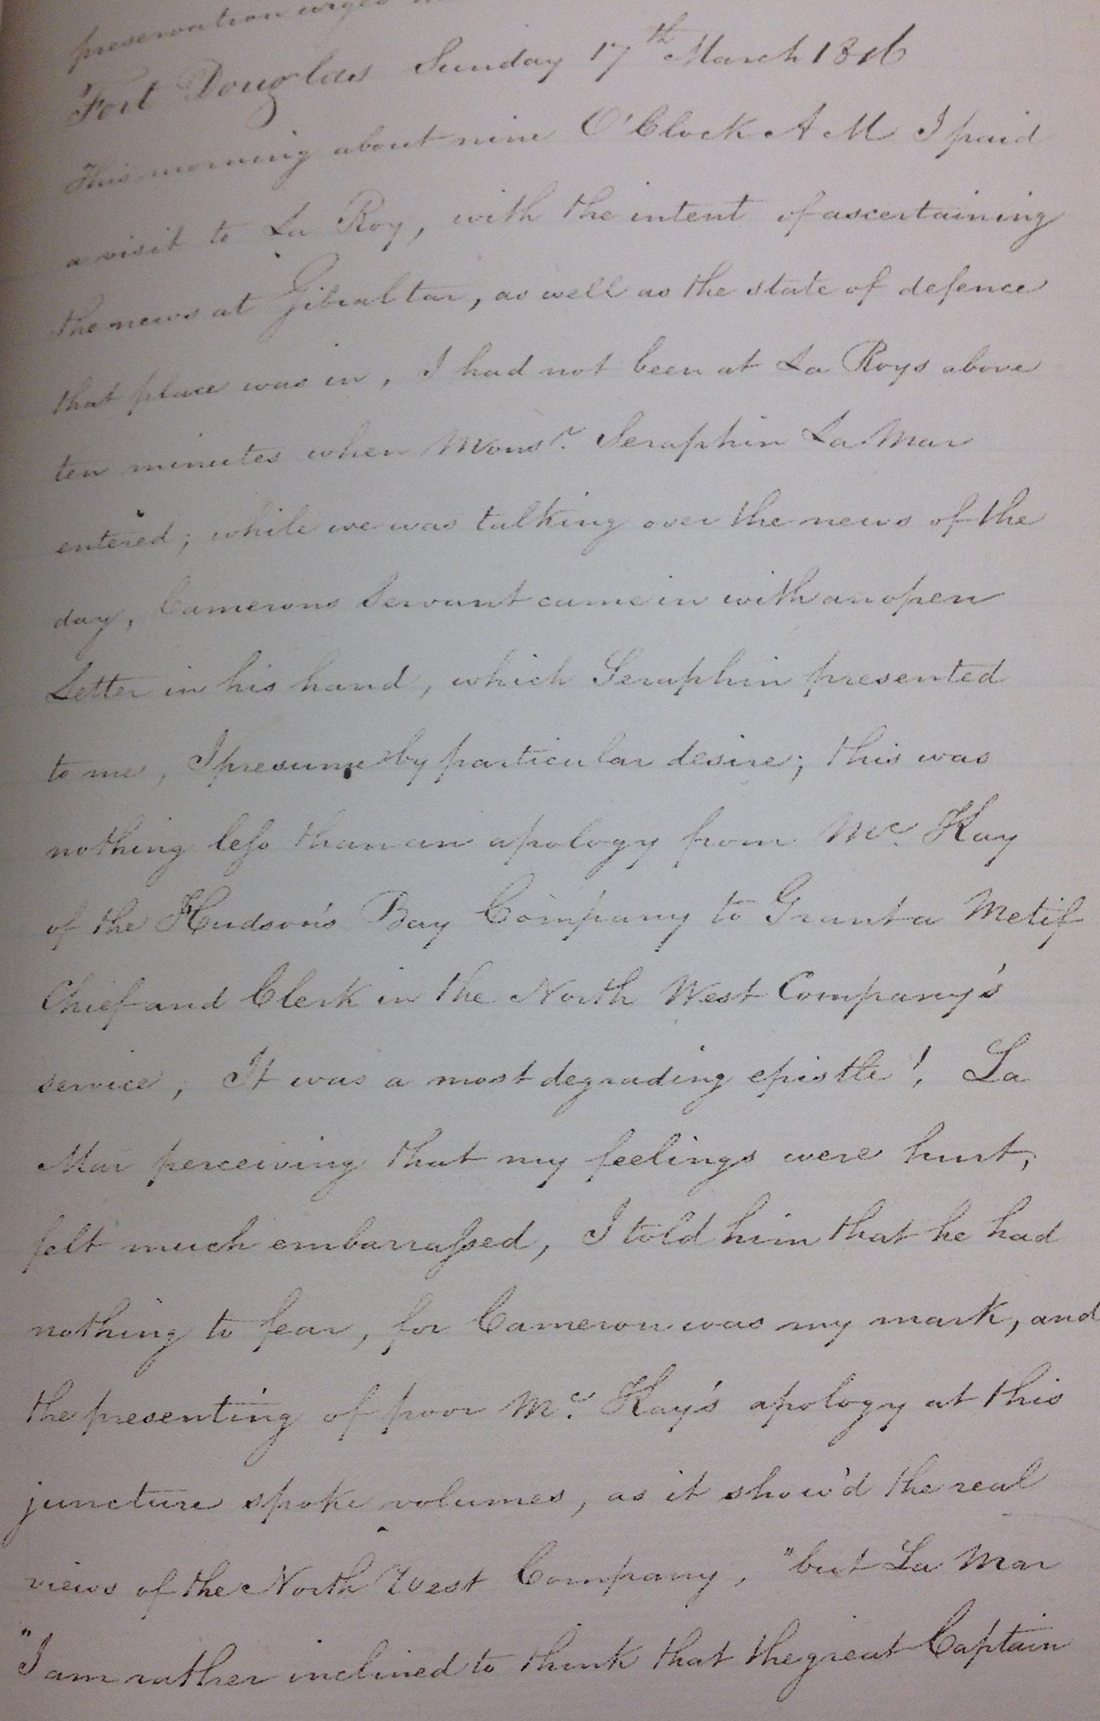 preservation urges
Fort Douglas Sunday 17th March 1816
This morning about nine O'Clock A M I paid
a visit to La Roy, with the intent of ascertaining
the news at Gibraltar, as well as the state of defence
that place was in, I had not been at La Roys above
ten minutes when Monsr. Seraphin La Mar
entered; while we was talking over the news of the
day, Camerons Servant came in with an open
Letter in his hand, which Seraphin presented
to me, I presume by particular desire; this was
nothing less than an apology from Mc. Kay
of the Hudson's Bay Company to Grant a Metif
Chief and Clerk in the North West Company's
service; It was a most degrading epistle!, La
Mar perceiving that my feelings were hurt,
felt much embarrassed, I told him that he had
nothing to fear, for Cameron was my mark, and
the presenting of poor Mc. Kay's apology at this
juncture spoke volumes, as it show'd the real
views of the North West Company, "but La Mar
"I am rather inclined to think that the great Captain